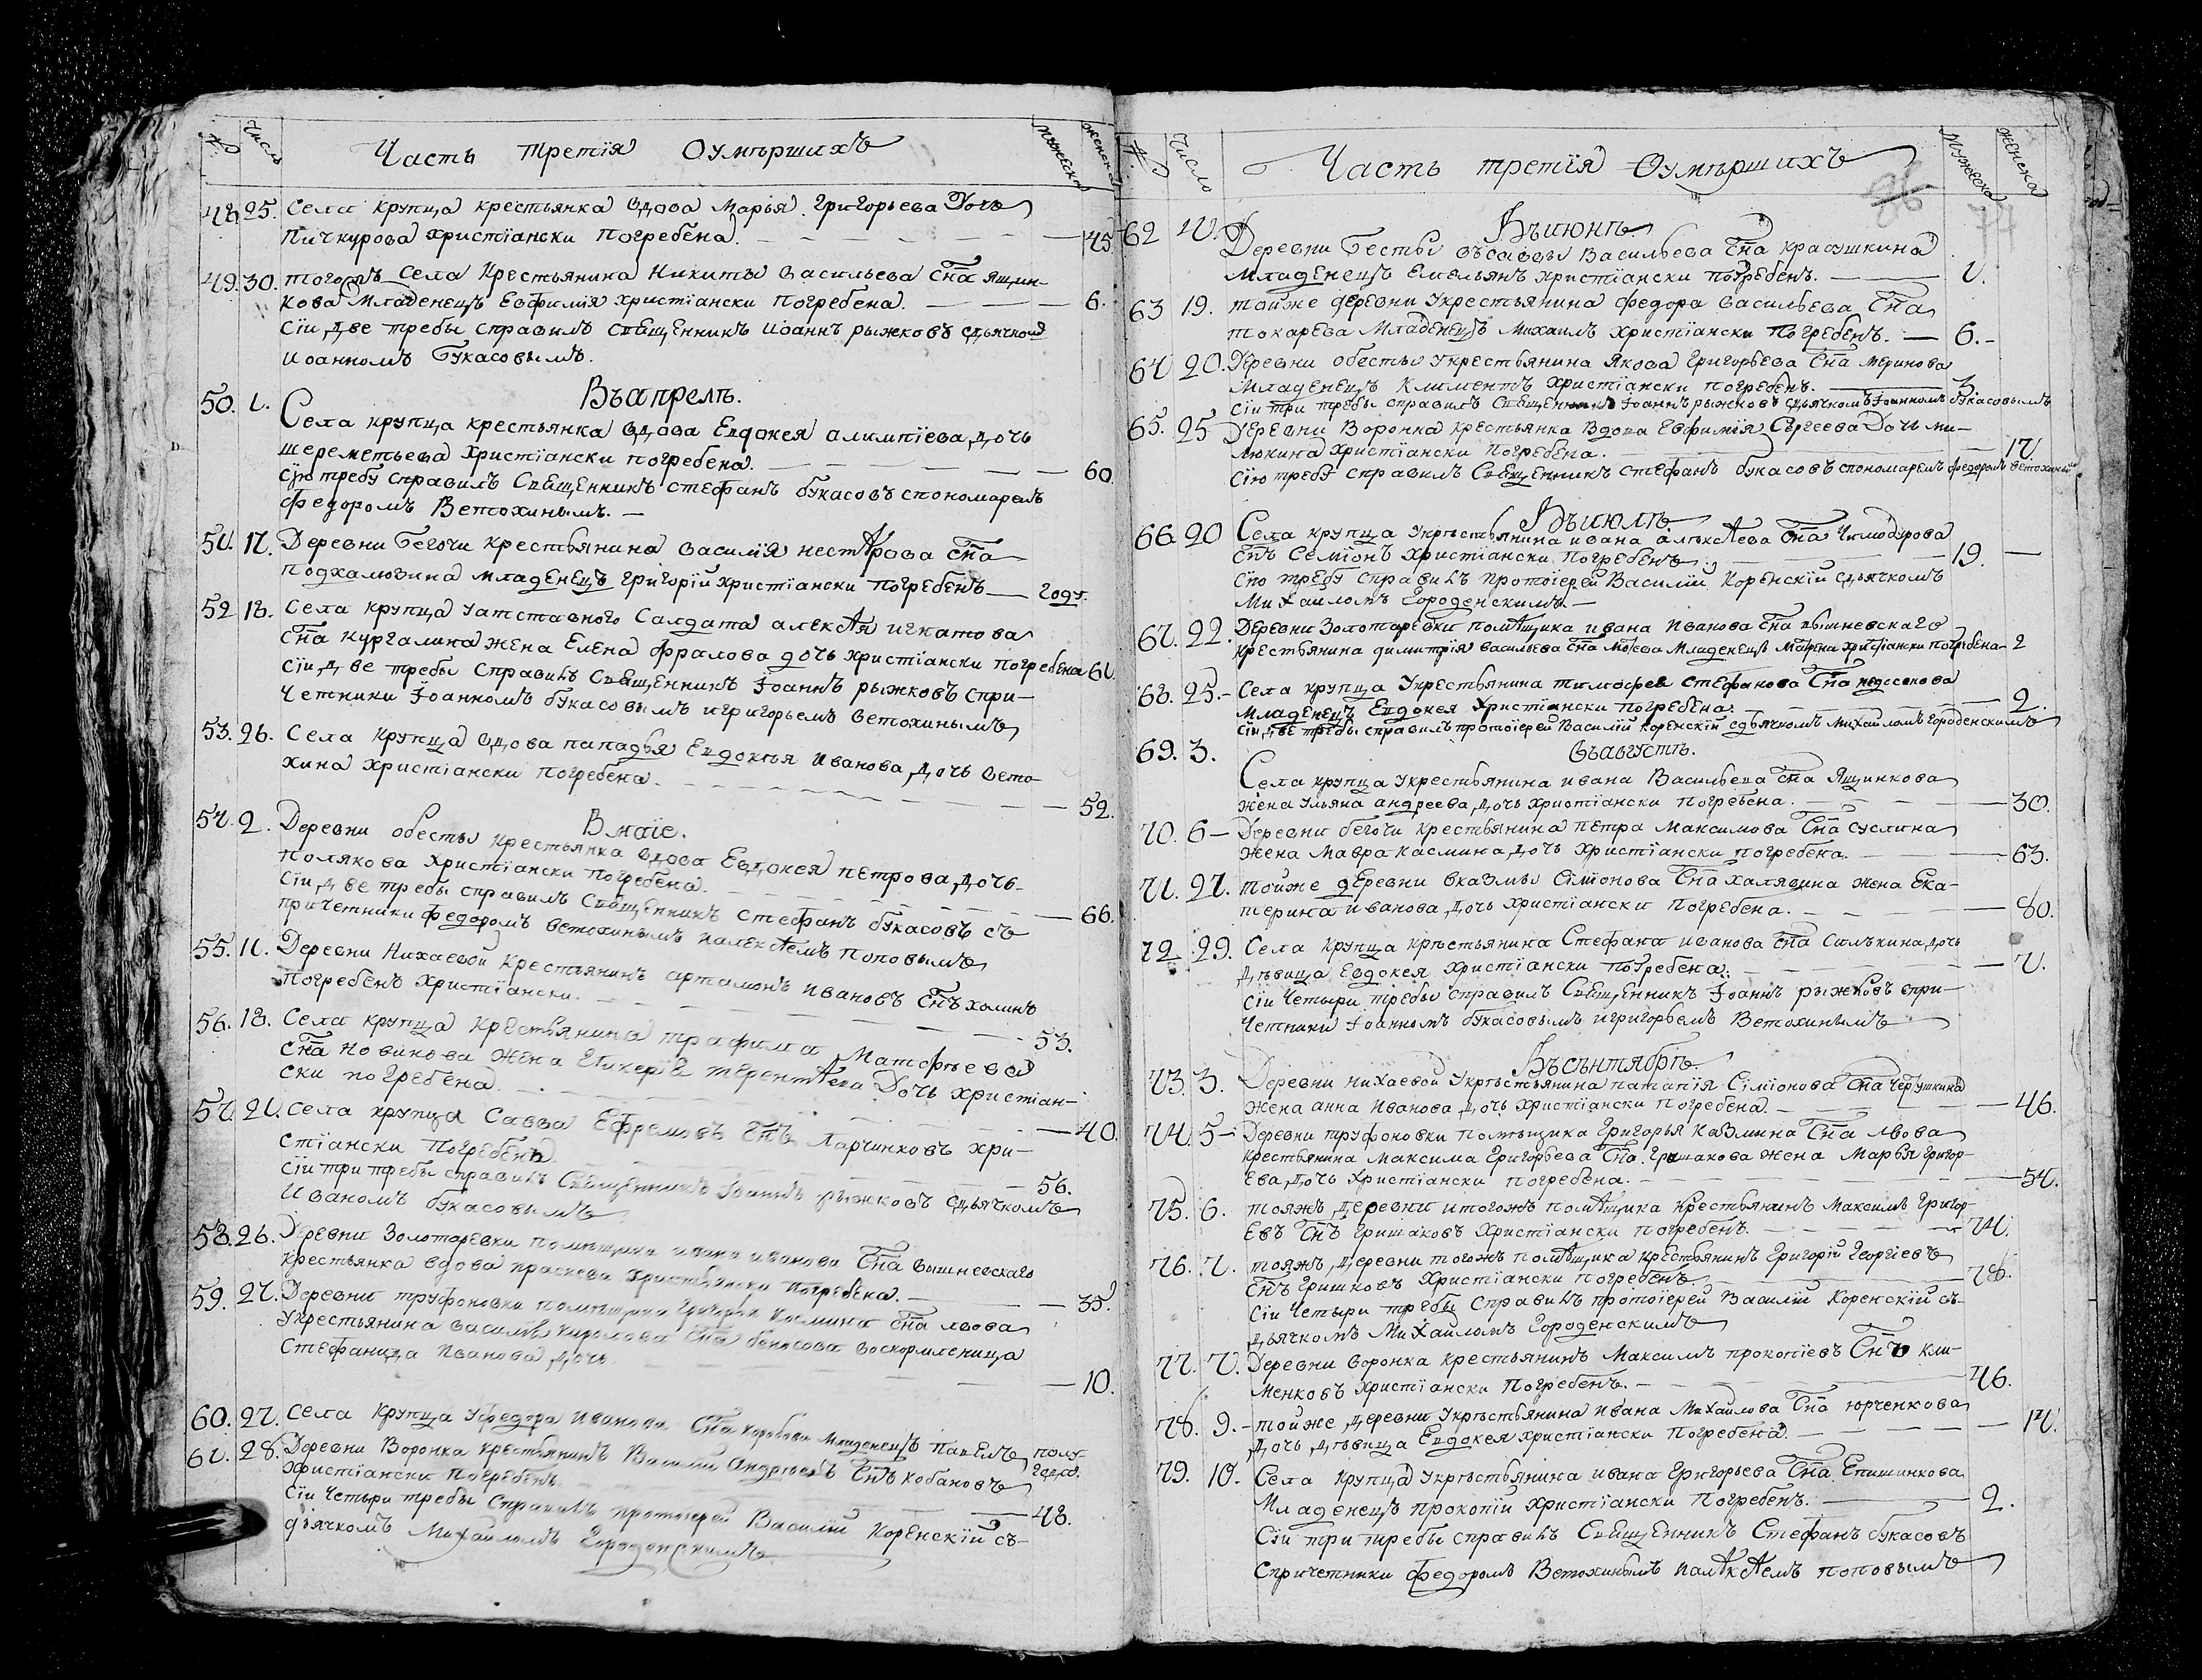 №
Число
Часть третїя Оумѣршихъ
мужеска
женска
48 25. Села крупца крестьянка вдова Марья Григорьева дочь
Пичкурова христїански погребена. 45
49. 30. тогожъ села крестьянина Никиты Васильева сна Ящин-
кова младенецъ Евфимїя христїански погребена. 6.
Сїи две требы справилъ священникъ Иоаннъ рыжковъ сдьячком
Иоанномъ Букасовымъ.
Въапрелѣ.
50. 1. Села крупца крестьянка вдова Евдокея алимпїева дочь
шереметьева христїански погребена. 60
Сїю требу справилъ священникъ Стефанъ букасовъ спономаремъ
Федоромъ Ветохинымъ.
51. 17. Деревни Бегочи крестьянина василїя нестѣрова сна
подхалюзина младенецъ григорїй христїански погребенъ году.
52 18. Села крупца уатставного салдата алексѣя игнатова
сна кургалина жена Елена фралова дочь христїански погребена 61.
Сїи две требы справилъ священникъ Iоаннъ рыжковъ спри-
четники Iоанномъ букасовымъ игригорьемъ ветохинымъ
53. 26. Села крупца вдова пападья Евдокѣя Иванова дочь вето-
хина христїански погребена. 52.
Вмаїе.
54. 2. Деревни обесты крестьянка вдова Евдокея петрова дочь
полякова христїански погребена. 66.
Сїи две требы справилъ священникъ Стефанъ букасовъ съ
причетники федоромъ ветохинымъ иалексѣемъ поповымъ
55. 11. Деревни Нихаевой крестьянинъ артамонъ ивановъ снъ халинъ
погребенъ христїански. 53.
56. 18. Села крупца крестьянина трафима Матфѣева
сна новикова жена Гликерїя терентѣева дочь христїан-
ски погребена. 40.
57. 21. Села крупца Савва Ефремовъ снъ Ларчинковъ хри-
стїански погребенъ. 56.
Сїи три требы справилъ священникъ Iоаннъ рыжковъ сдьячкомъ
Иваномъ букасовымъ
58. 26. Деревни Золотаревки помѣщика ивана иванова сна вышневскаго
крестьянка вдова праскева христїански погребена. 35.
59. 27. Деревни труфоновки помѣщика григорья козмина сна львова
укрестьянина василья кирилова сна воскормленица
Стефанида Иванова дочь 10.
60. 27. Села крупца уфедора иванова сна коробова младенецъ павелъ полу-
года.
61. 28. Деревни Воронка крестьянинъ Василїй андрѣевъ снъ кобановъ
христїански погребенъ. 48.
Сїи четыри требы справилъ протоїерей Василїй Коренскїй съ-
дьячкомъ Михаиломъ Городенскимъ
№
Число
Часть третїя Оумѣршихъ
мужеска
женска
Въиюнѣ
62 17. Деревни Бесты усаввы Васильева сна красушкина
младенецъ Емельянъ христїански погребенъ. 1.
63 19. тойже деревни укрестьянина федора васильева сна
токарева младенецъ михаилъ христїански погребенъ. 6.
64 20. Деревни обесты укрестьянина якова григорьева сна меринова
младенецъ климентъ христїански погребенъ. 3.
Сїи три требы справилъ священникъ Iоаннъ рыжковъ сдьячкомъ Iоанномъ букасовымъ
65. 25 Деревни Воронка крестьянка вдова Евфимїя Сергеева дочь ми-
люкина христїански погребена. 71
Сїю требу справилъ священникъ стефанъ букасовъ спономаремъ федоромъ ветохинымъ
Въиюлѣ
66. 20 Села крупца укрѣстьянина ивана алѣксѣева сна Чимодурова
снъ Семїонъ христїански погребенъ. 19.
Сїю требу справилъ протоїерей Василїй Коренскїй сдьячкомъ
Михаиломъ Городенскимъ.
67. 22. Деревни Золотаревки помѣщика ивана иванова сна вышневскаго
крестьянина димитрїя васильева сна младенецъ христїански погребена 2
68. 25. Села крупца укрестьянина тимофея стефанова сна
младенецъ Евдокея христїански погребена. 2.
Сїи две требы справилъ протоїерей Василїй Коренскїй сдьячкомъ Михаиломъ Городенскимъ
Въавгустѣ.
69. 3. Села крупца укрестьянина ивана Васильева сна Ящинкова
жена Ульяна андреева дочь христїански погребена. 30.
70. 6 Деревни бегочи крестьянина петра максимова сна суслина
жена мавра касмина дочь христїански погребена. 63.
71. 27. тойже деревни указмы Сїмїонова сна халявина жена Ека-
терина иванова дочь христїански погребена. 80.
72 29. Села крупца крѣстьянина Стефана иванова сна Силькина дочь
дѣвица Евдокея христїански погребена. 7.
Сїи четыри требы справилъ священникъ Iоаннъ рыжковъ спри-
четники Iоанномъ букасовымъ игригорьемъ Ветохинымъ
Въсѣнтябрѣ.
73. 3. Деревни нихаевой укрѣстьянина патапїя Сїмїонова сна чернушкина
жена анна иванова дочь христїански погребена. 46.
74 5 Деревни труфоновки помѣщика григорья казмина сна львова
крестьянина максима григорьева сна гришакова жена марья григор-
ева дочь христїански погребена. 57.
75. 6. тояжъ деревни итогожъ помѣщика крестьянинъ максимъ григор-
евъ снъ гришаковъ христїански погребенъ. 71.
76. 7. тояжъ деревни тогожъ помѣщика крестьянинъ григорїй георгїевъ
снъ гришковъ христїански погребенъ. 78.
Сїи четыри требы справилъ протоїерей Василїй Коренскїй съ-
дьячкомъ Михаиломъ Городенскимъ
77. 7. Деревни воронка крестьянинъ максимъ прокопїевъ снъ кли-
менковъ христїански погребенъ. 46.
78. 9. тойже деревни укрѣстьянина ивана михаилова сна юрченкова
дочь дѣвица Евдокея христїански погребена. 17.
79. 10. Села крупца укрѣстьянина ивана григорьева сна Епишинкова
младенецъ прокопїй христїански погребенъ. 2.
Сїи три требы справилъ священникъ Стефанъ букасовъ
спричетники федоромъ Ветохинымъ иалѣксѣемъ поповымъ